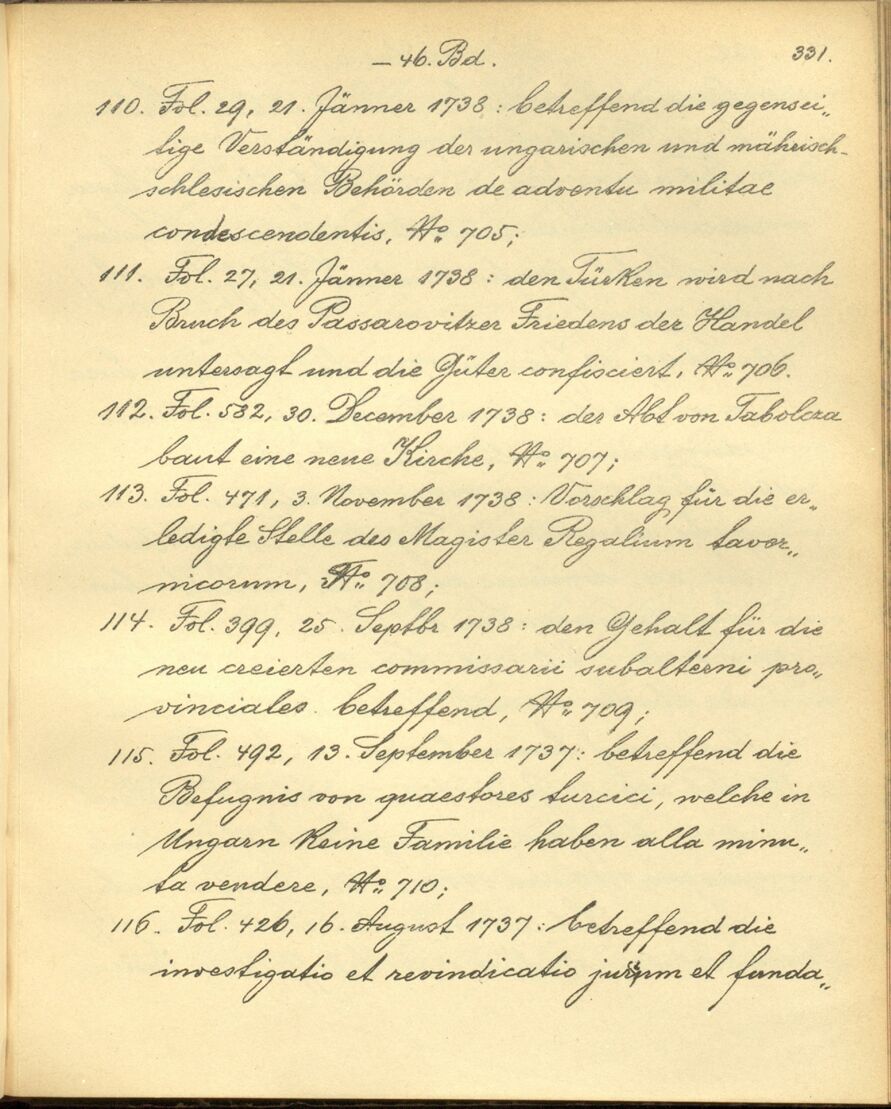 – 46. Bd.
331.
110. Fol. 29, 21. Jänner 1738: betreffend die gegensei„
tige Verständigung der ungarischen und mährisch-
schlesischen Behörden de adventu militae
condescendentis, No 705;
111. Fol. 27, 21. Jänner 1738: den Türken wird nach
Bruch des Passarovitzer Friedens der Handel
untersagt und die Güter confisciert, No 706.
112. Fol. 582, 30. December 1738: der Abt von Tabolcza
baut eine neue Kirche, No 707;
113. Fol. 471, 3. November 1738: Vorschlag für die er„
ledigte Stelle des Magister Regalium taver„
nicorum, No 708;
114. Fol. 399, 25. Septbr 1738: den Gehalt für die
neu creierten commissarii subalterni pro„
vinciales betreffend, No 709;
115. Fol. 492, 13. September 1737: betreffend die
Befugnis von quaestores turcici, welche in
Ungarn keine Familie haben alla minu„
ta vendere, No 710;
116. Fol. 426, 16. August 1737: betreffend die
investigatio et revindicatio jurium et funda„